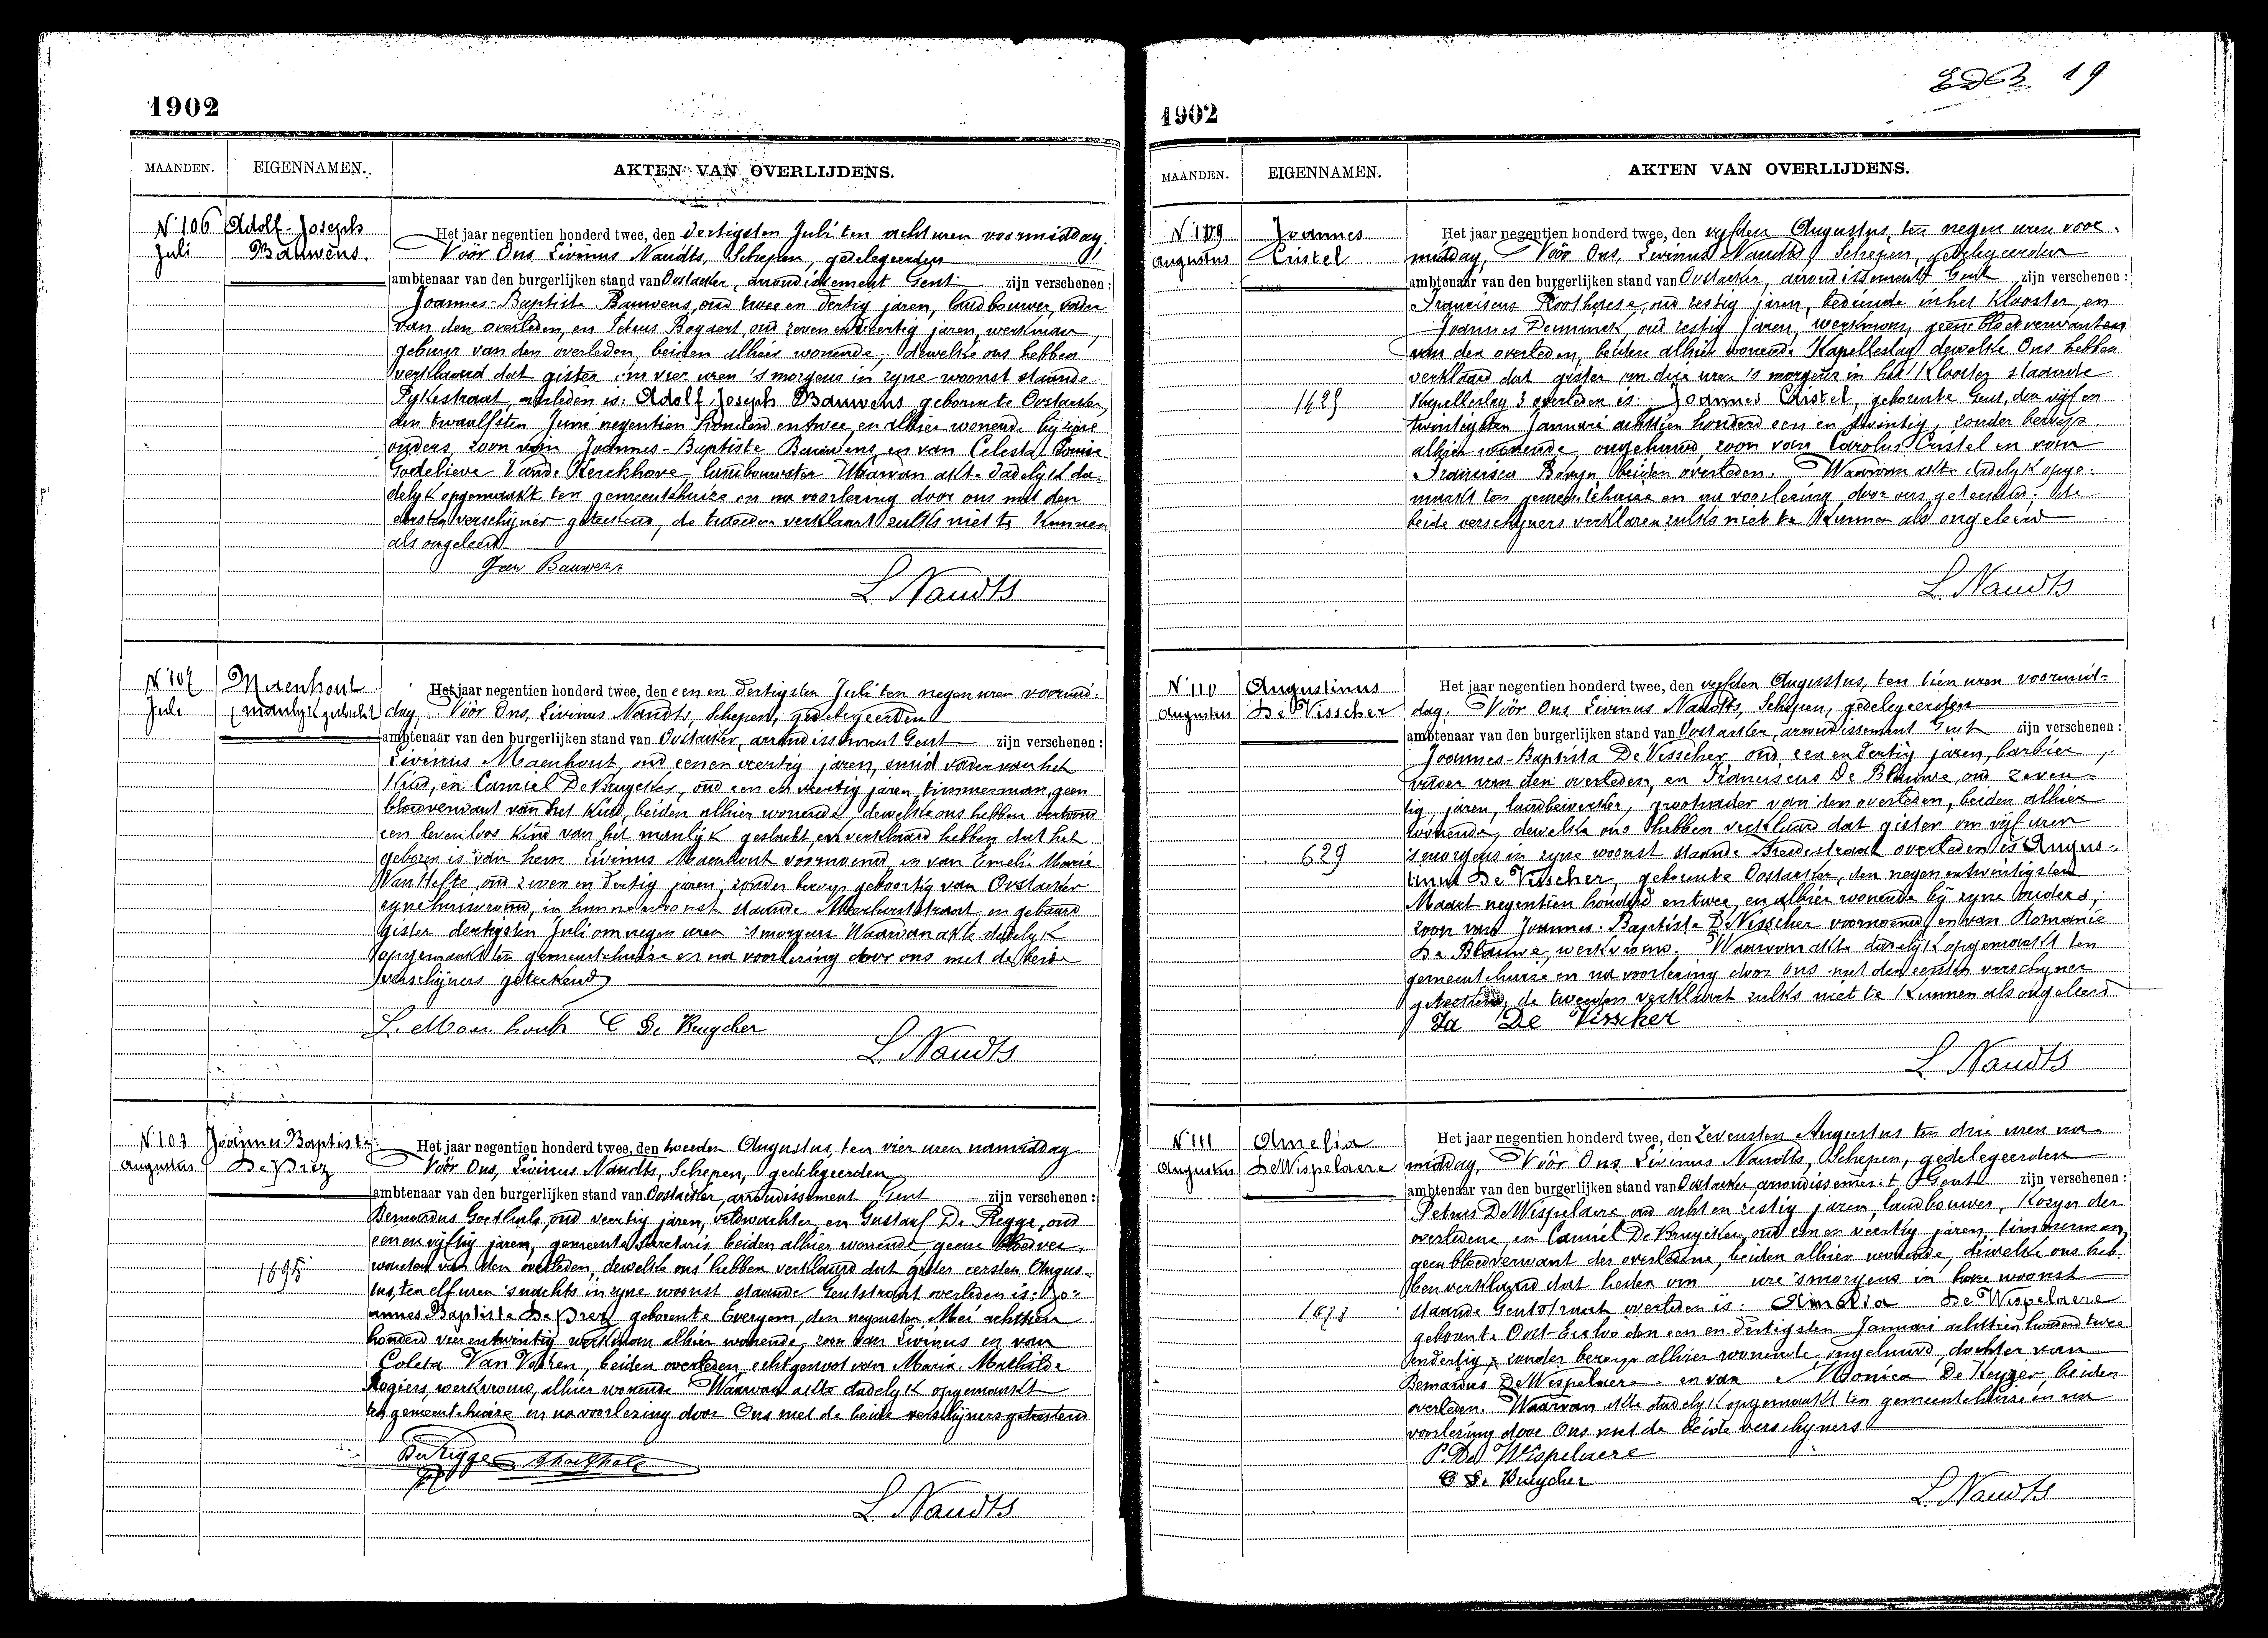 1902
MAANDEN. EIGENNAMEN. AKTEN VAN OVERLIJDENS.
N° 106 Adolf-Joseph
Juli Bauwens.
Het jaar negentien honderd twee, den dertigsten Juli ten acht uren voormiddag.
Vóór Ons, Livinus Naudts, Schepen, gedelegeerden
ambtenaar van den burgerlijken stand van Oostacker, arrondissement Gent zijn verschenen:
Joannes-Baptiste Bauwens, oud twee en dertig jaren, landbouwer, vader
van den overleden, en Petrus Bogaert, oud zeven en veertig jaren, werkman,
gebuur van den overleden, beiden alhier wonende, dewelke ons hebben
verklaard dat gister om vier uren 's morgens in zyne woonst staande
overleden is: Adolf Joseph Bauwens geboren te Oostacker,
den twaalfsten Juni negentien honderd en twee, en alhier wonende by zyne
ouders, zoon van Joannes-Baptiste Bauwens en van Celesta Louise
Godelieve Vande Kerckhove, landbouwster Waarvan akte dadelyk da-
delyk opgemaakt ten gemeentehuize en na voorlezing door ons met den
eersten verschijner geteekend, de tweeden verklaart zulks niet te kunnen
als ongeleerd
Bauwens
L. Naudts
N° 107 Maenhout
Juli (manlyk geslacht)
Het jaar negentien honderd twee, den een en dertigsten Juli ten negen uren voormid-
dag, Vóór Ons, Livinus Naudts, Schepen, gedelegeerden
ambtenaar van den burgerlijken stand van Oostacker, arrondissement Gent zijn verschenen:
Livinus Maenhout, oud een en veertig jaren, smid vader van het
kind, en Camiel De Bruycker, oud een en veertig jaren, timmerman, geen
bloedverwant van het kind, beiden alhier wonende, dewelke ons hebben vertoond
een levenloos kind van het manlyk geslacht, en verklaard hebben dat het
geboren is van hem Livinus Maenhout voornoemd, en van Emeli Marie
Van Hefte, oud zeven en dertig jaren, zonder beroep geboortig van Oostacker
zyne huisvrouw, in hunne woonst staande in geboord
gister dertigsten Juli om negen uren 's morgens Waarvan akte dadelyk
opgemaakt ten gemeentehuize en na voorlezing door ons met de beide
verschijners geteekend
L. Maenhout C De Bruycker
L. Naudts
N° 108 Joannes-Baptiste
Augustus De Prez
Het jaar negentien honderd twee, den tweeden Augustus, ten vier uren namiddag
Vóór Ons, Livinus Naudts, Schepen, gedelegeerden
ambtenaar van den burgerlijken stand van Oostacker, arrondissement Gent zijn verschenen:
Bernardus Goethals, oud veertig jaren, veldwachter, en Gustaaf De Regge, oud
een en vyftig jaren, gemeente secretaris beiden alhier wonende geene bloedver-
wanten van den overleden, dewelke ons hebben verklaard dat gister eersten Augus-
1895
tus, ten elf uren 's nachts in zyne woonst staande Gentstraat overleden is: Jo-
annes Baptiste De Prez geboren te Evergem, den negensten Mei achttien
honderd vier en twintig werkman alhier wonende, zoon van Livinus en van
Coleta Van Vooren, beiden overleden echtgenoot van Maria Mathilde
Rogiers, werkvrouw, alhier wonende Waarvan akte dadelyk opgemaakt
ten gemeentehuize en na voorlezing door Ons met de beide verschijners geteekend
De Regge Goethals
L. Naudts
19
1902
MAANDEN. EIGENNAMEN. AKTEN VAN OVERLIJDENS.
N° 109 Joannes
Augustus Cristel
Het jaar negentien honderd twee, den vyfden Augustus, ten negen uren voor-
middag, Vóór Ons, Livinus Naudts, Schepen, gedelegeerden
ambtenaar van den burgerlijken stand van Oostacker, arrondissement Gent zijn verschenen:
Franciscus Roothaese, oud zestig jaren, bediende in het Klooster, en
Joannes Deminck, oud zestig jaren, werkman, geene bloedverwanten
van den overleden, beiden alhier wonende Kapelleslag dewelke Ons hebben
verklaard dat gister om drie uren 's morgens in het Klooster staande
1629
Kapelleslag 3 overleden is: Joannes Cristel, geboren te Gent, den vijf en
twintigsten Januari achttien honderd een en twintig, zonder beroep
alhier wonende, ongehuwd, zoon van Carolus Cristel en van
Francisca beiden overleden. Waarvan akte dadelyk opge-
maakt ten gemeentehuize en na voorlezing door ons geteekend, de
beide verschijners verklaren zulks niet te kunnen als ongeleerd
L. Naudts
N° 110 Augustinus
Augustus De Visscher
Het jaar negentien honderd twee, den vyfden Augustus, ten tien uren voormid-
dag, Vóór Ons Livinus Naudts, Schepen, gedelegeerden
ambtenaar van den burgerlijken stand van Oostacker, arrondissement Gent zijn verschenen:
Joannes-Baptista De Visscher, oud een en dertig jaren, barbier,
vader van den overleden, en Franciscus De Blauwe, oud zeven-
tig jaren, landbewerker, grootvader van den overleden, beiden alhier
wonende, dewelke ons hebben verklaard dat gister om vijf uren
629
's morgens in zyne woonst staande Breedestraat overleden is Augus-
tinus De Visscher, geboren te Oostacker, den negen en twintigsten
Maart negentien honderd en twee, en alhier wonende bij zyne ouders,
zoon van Joannes-Baptiste De Visscher voornoemd en van Romanie
De Blauwe, werkvrouw. Waarvan akte dadelyk opgemaakt ten
gemeentehuize en na voorlezing door ons met den eersten verschyner
geteekend, de tweeden verklaart zulks niet te kunnen als ongeleerd
De Visscher
L. Naudts
N° 111 Amelia
Augustus De Wispelaere
Het jaar negentien honderd twee, den zevensten Augustus ten drie uren na-
middag, Vóór Ons Livinus Naudts, Schepen, gedelegeerden
ambtenaar van den burgerlijken stand van Oostacker arrondissement Gent zijn verschenen:
Petrus De Wispelaere oud acht en zestig jaren, landbouwer, Kozyn der
overledene, en Camiel De Bruycker, oud een en veertig jaren, timmerman,
geen bloedverwant der overledene, beiden alhier wonende, dewelke ons heb-
ben verklaard dat heden om ure 's morgens in hare woonst
1073
staande Gentstraat overleden is: Amelia De Wispelaere
geboren te Oost-Eecloo den een en dertigsten Januari achttien honderd twee
en dertig, zonder beroep alhier wonende ongehuwd dochter van
Bernardus De Wispelaere en van Monica De Keyzer, beiden
overleden. Waarvan akte dadelyk opgemaakt ten gemeentehuize en na
voorlezing door Ons met de beide verschyners
P. De Wispelaere
C De Bruycker
L. Naudts